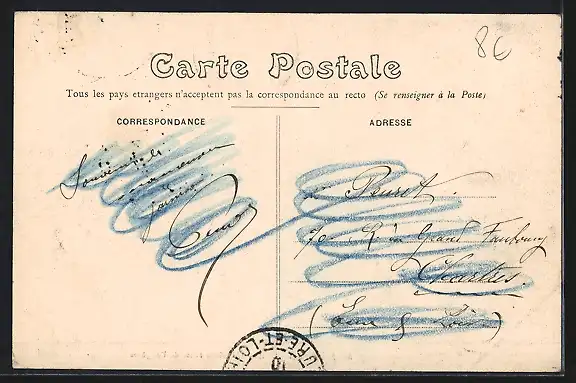 8€
Carte Postale
Tous les pays etrangers n'acceptent pas la correspondance au recto (Se renseigner à la Poste)
CORRESPONDANCE
Souvenir de
ADRESSE
Peuret.
70 R du Grand Faubourg
Chartres.
(Eure & Loir)
EURE-ET-LOIR